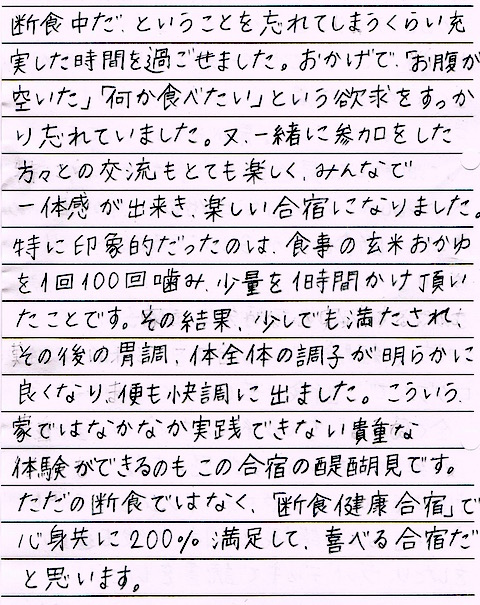 断食中だ、ということを忘れてしまうくらい充
実した時間を過ごせました。おかげで、「お腹が
空いた」「何か食べたい」という欲求をすっか
り忘れていました。又、一緒に参加をした
方々との交流もとても楽しく、みんなで
一体感が出来き、楽しい合宿になりました。
特に印象的だったのは、食事の玄米おかゆ
を1回100回噛み、少量を1時間かけ頂い
たことです。その結果、少しでも満たされ、
その後の胃調、体全体の調子が明らかに
良くなり、便も快調に出ました。こういう、
家ではなかなか実践できない貴重な
体験ができるのもこの合宿の醍醐見です。
ただの断食ではなく、「断食健康合宿」で
心身共に200%満足して、喜べる合宿だ
と思います。